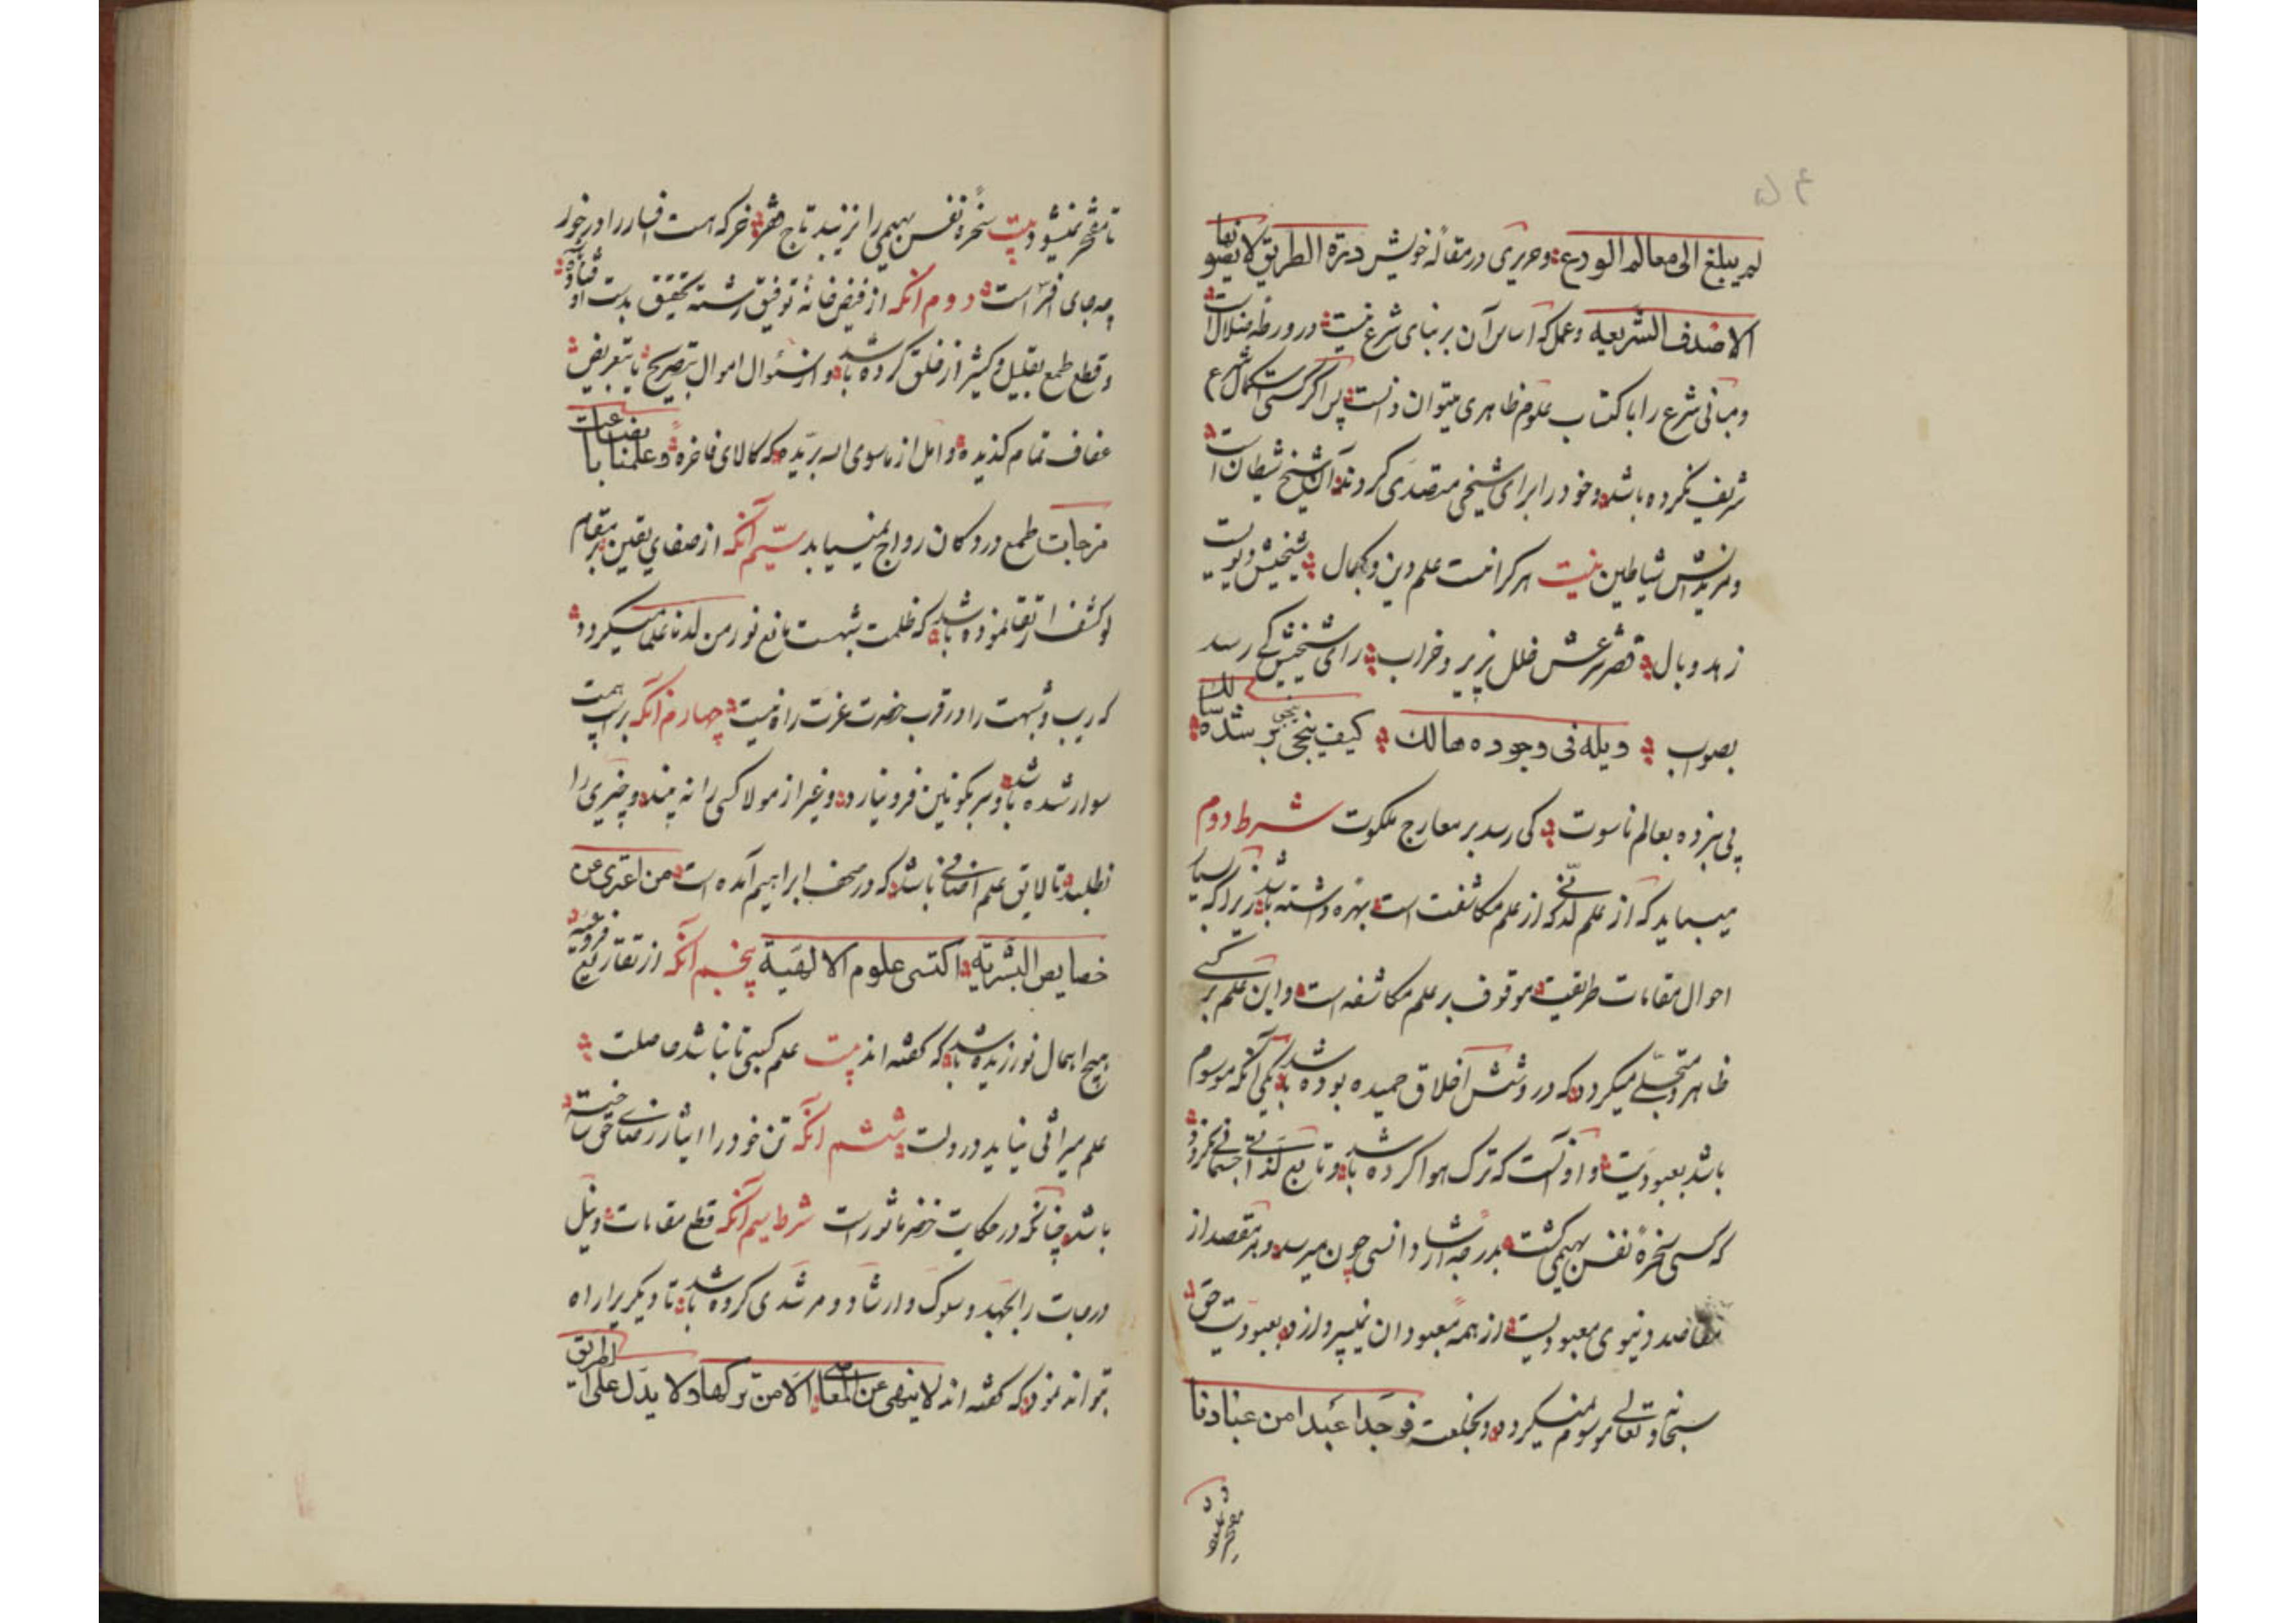 ۵۴
لم يبلغ الى معالم الودع وحريرى در مقاله خويش درّة الطريق لا يصونها
الا صدف الشريعه وعمل كه اساس آن بر بناى شرع نيست در ورطه ضلال است
ومبانى شرع را باكتساب علوم ظاهرى ميتوان دانست پس اگر كسى استكمال شرع
شريف نكرده باشد وخود را براى شيخى متصدى گرداند آن شيخ شيطان است
ومريدانش شياطين بيت هر كرا نيست علم دين وكمال شيخيش ديو است
زهد وبال قصر شرعش خلل پزير وخراب راى شيخيش كى رسد
بصواب ويله فى وجوده هالك كيف ينجى بر شده سالك
پى نبرده بعالم ناسوت كى رسد بر معارج ملكوت شرط دوم
ميبايد كه از علم لدنّى كه از علم مكاشفت است بهره داشته باشد زيرا كه سيار
احوال مقامات طريقت موقوف بر علم مكاشفه است واين علم بر كسى
ظاهر ومتجلّى ميگردد كه در وشش اخلاق حميده بوده باشد يكى آنكه موسوم
باشد بعبوديت واو آنست كه ترك هوا كرده باشد وتابع لذات جسمانى نگردد
كه كسى سخرهٔ نفس بهيمى گشت بدرجه ارشاد انسى چون ميرسد وبر مقصد از
مقاصد دنيوى معبوديست از همه معبودان نميپردازد بعبوديت حق
سبحانه وتعالى موسوم نميگردد وبخلعت فوجدا عبدا من عبادنا
تا مفتخر نميشود بيت سخرهٔ نفس بهيمى را نزيبد تاج فقر خر كه هست افسار را در خور
چه جاى افسر است دوم آنكه از فيض خانهٔ توفيق رشته تحقيق بدست او افتاده
وقطع طمع بقليل وكثير از خلق كرده باشد واز سئوال اموال بتصريح يا بتعريض
عفاف تمام گزيده وامل از ماسوى الله بريده كه كالاى فاخره وعلمنا با بضاعات
مزجات طمع در دكان رواج نمييابد سيّم آنكه از صفاي يقين بمقام
لو كشف ارتقا نموده باشد كه ظلمت شبهت مانع نور من لدنا علما ميگردد
كه ريب وشبهت را در قرب حضرت عزت راه نيست چهارم آنكه بر اسب همت
سوار شده باشد وسر بكونين فرو نيارد وغير از مولا كسى را نه بيند وچيزى را
نطلبد تا لايق علم اضافى باشد كه در صحف ابراهيم آمده است من اعترى عن
خصايص البشرية اكتسى علوم الالهية پنجم آنكه از تقارير فروع
هيچ اهمال نورزيده باشد كه گفته اند بيت علم كسبى تا نباشد حاصلت
علم ميراثى نيايد در دلت ششم آنكه تن خود را ايثار رضاى حق ساخته
باشد چنانكه در حكايت خضر ماثور است شرط سيم آنكه قطع مقامات ونيل
درجات را بجهد وسلوك وارشاد ومرشدى كرده باشد تا ديگريرا راه
تواند نمود كه گفته اند لا ينهى عن المعاصى الا من تركها ولا يدل على الطريق